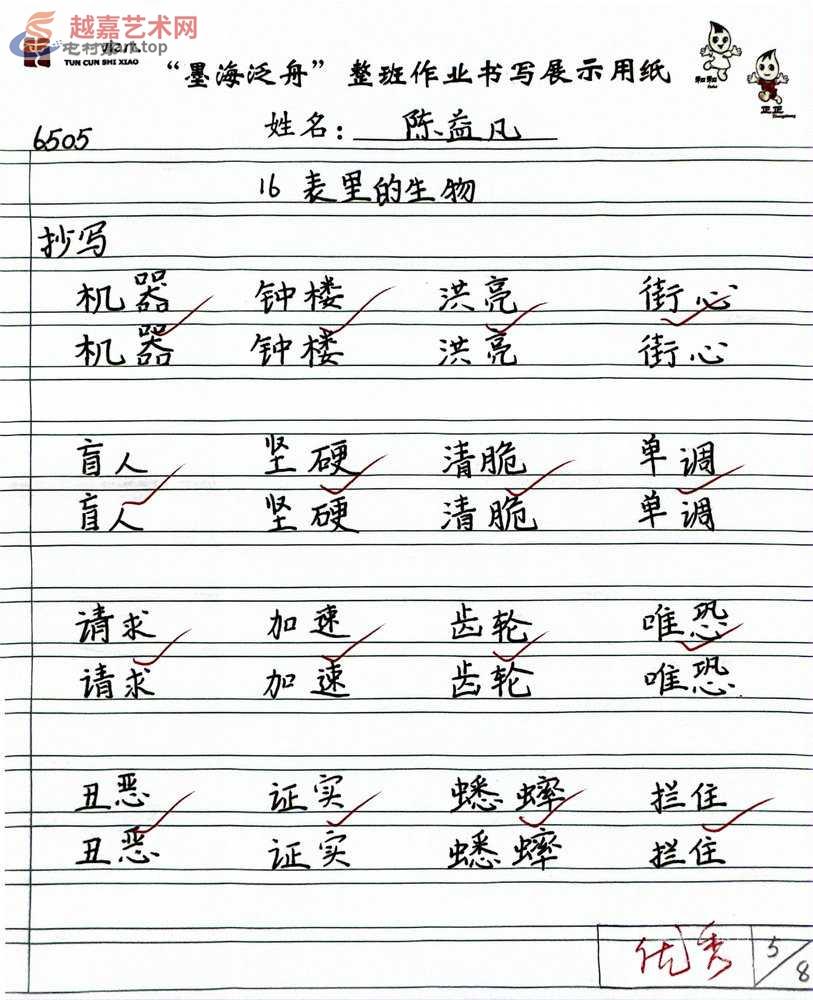 越嘉艺术网
TUN CUN SHI XIAO
“墨海泛舟”整班作业书写展示用纸
6505 姓名：陈益凡
16 表里的生物
抄写
机器 钟楼 洪亮 街心
机器 钟楼 洪亮 街心
盲人 坚硬 清脆 单调
盲人 坚硬 清脆 单调
请求 加速 齿轮 唯恐
请求 加速 齿轮 唯恐
丑恶 证实 蟋蟀 拦住
丑恶 证实 蟋蟀 拦住
优秀 5/8